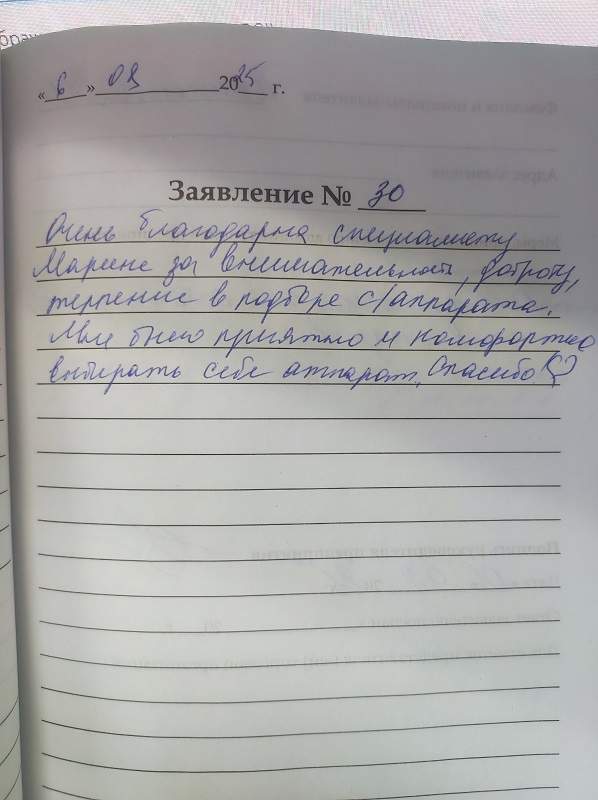 «6» 03 2025 г.
Заявление № 30
Очень благодарна специалисту
Марине за внимательность, доброту,
терпение в подборе с/аппарата.
Мне было приятно и комфортно
выбирать себе аппарат. Спасибо